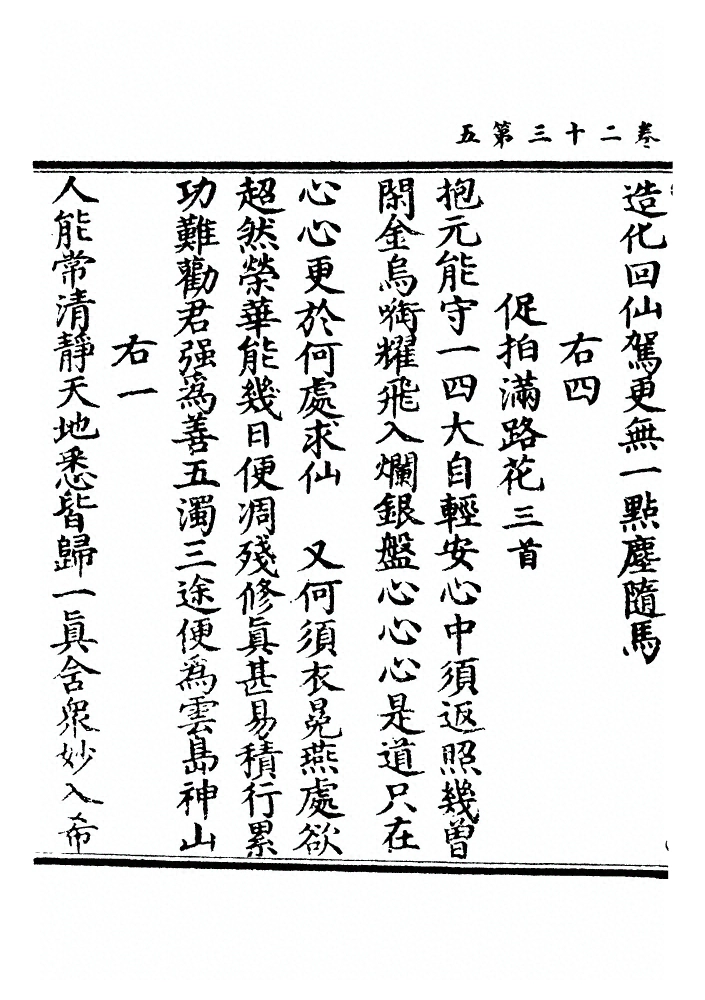 卷二十三第五
造化回仙駕更無一點塵隨馬
右四
促拍滿路花三首
抱元能守一四大自輕安心中須返照幾曾
閑金烏啣耀飛入爛銀盤心心心是道只在
心心更於何處求仙　又何須衣冕燕處欲
超然榮華能幾日便凋殘修眞甚易積行累
功難勸君强爲善五濁三途便爲雲島神山
右一
人能常清靜天地悉皆歸一眞含衆妙入希